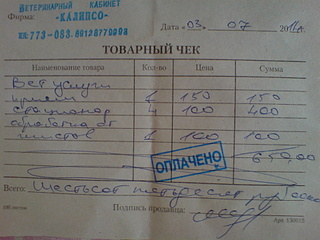 Ветеринарный кабинет
Фирма «КАЛИПСО»
тел. 773-083, 89128770998
Дата «03» 07 201
ТОВАРНЫЙ ЧЕК
Наименование товара Кол-во Цена Сумма
Вет услуги
прием 1 150 150
стационар 4 100 400
обработка от
глистов 1 100 100
ОПЛАЧЕНО
650,00
Всего: Шестьсот пятьдесят руб 00 коп
Подпись продавца:
100 листов